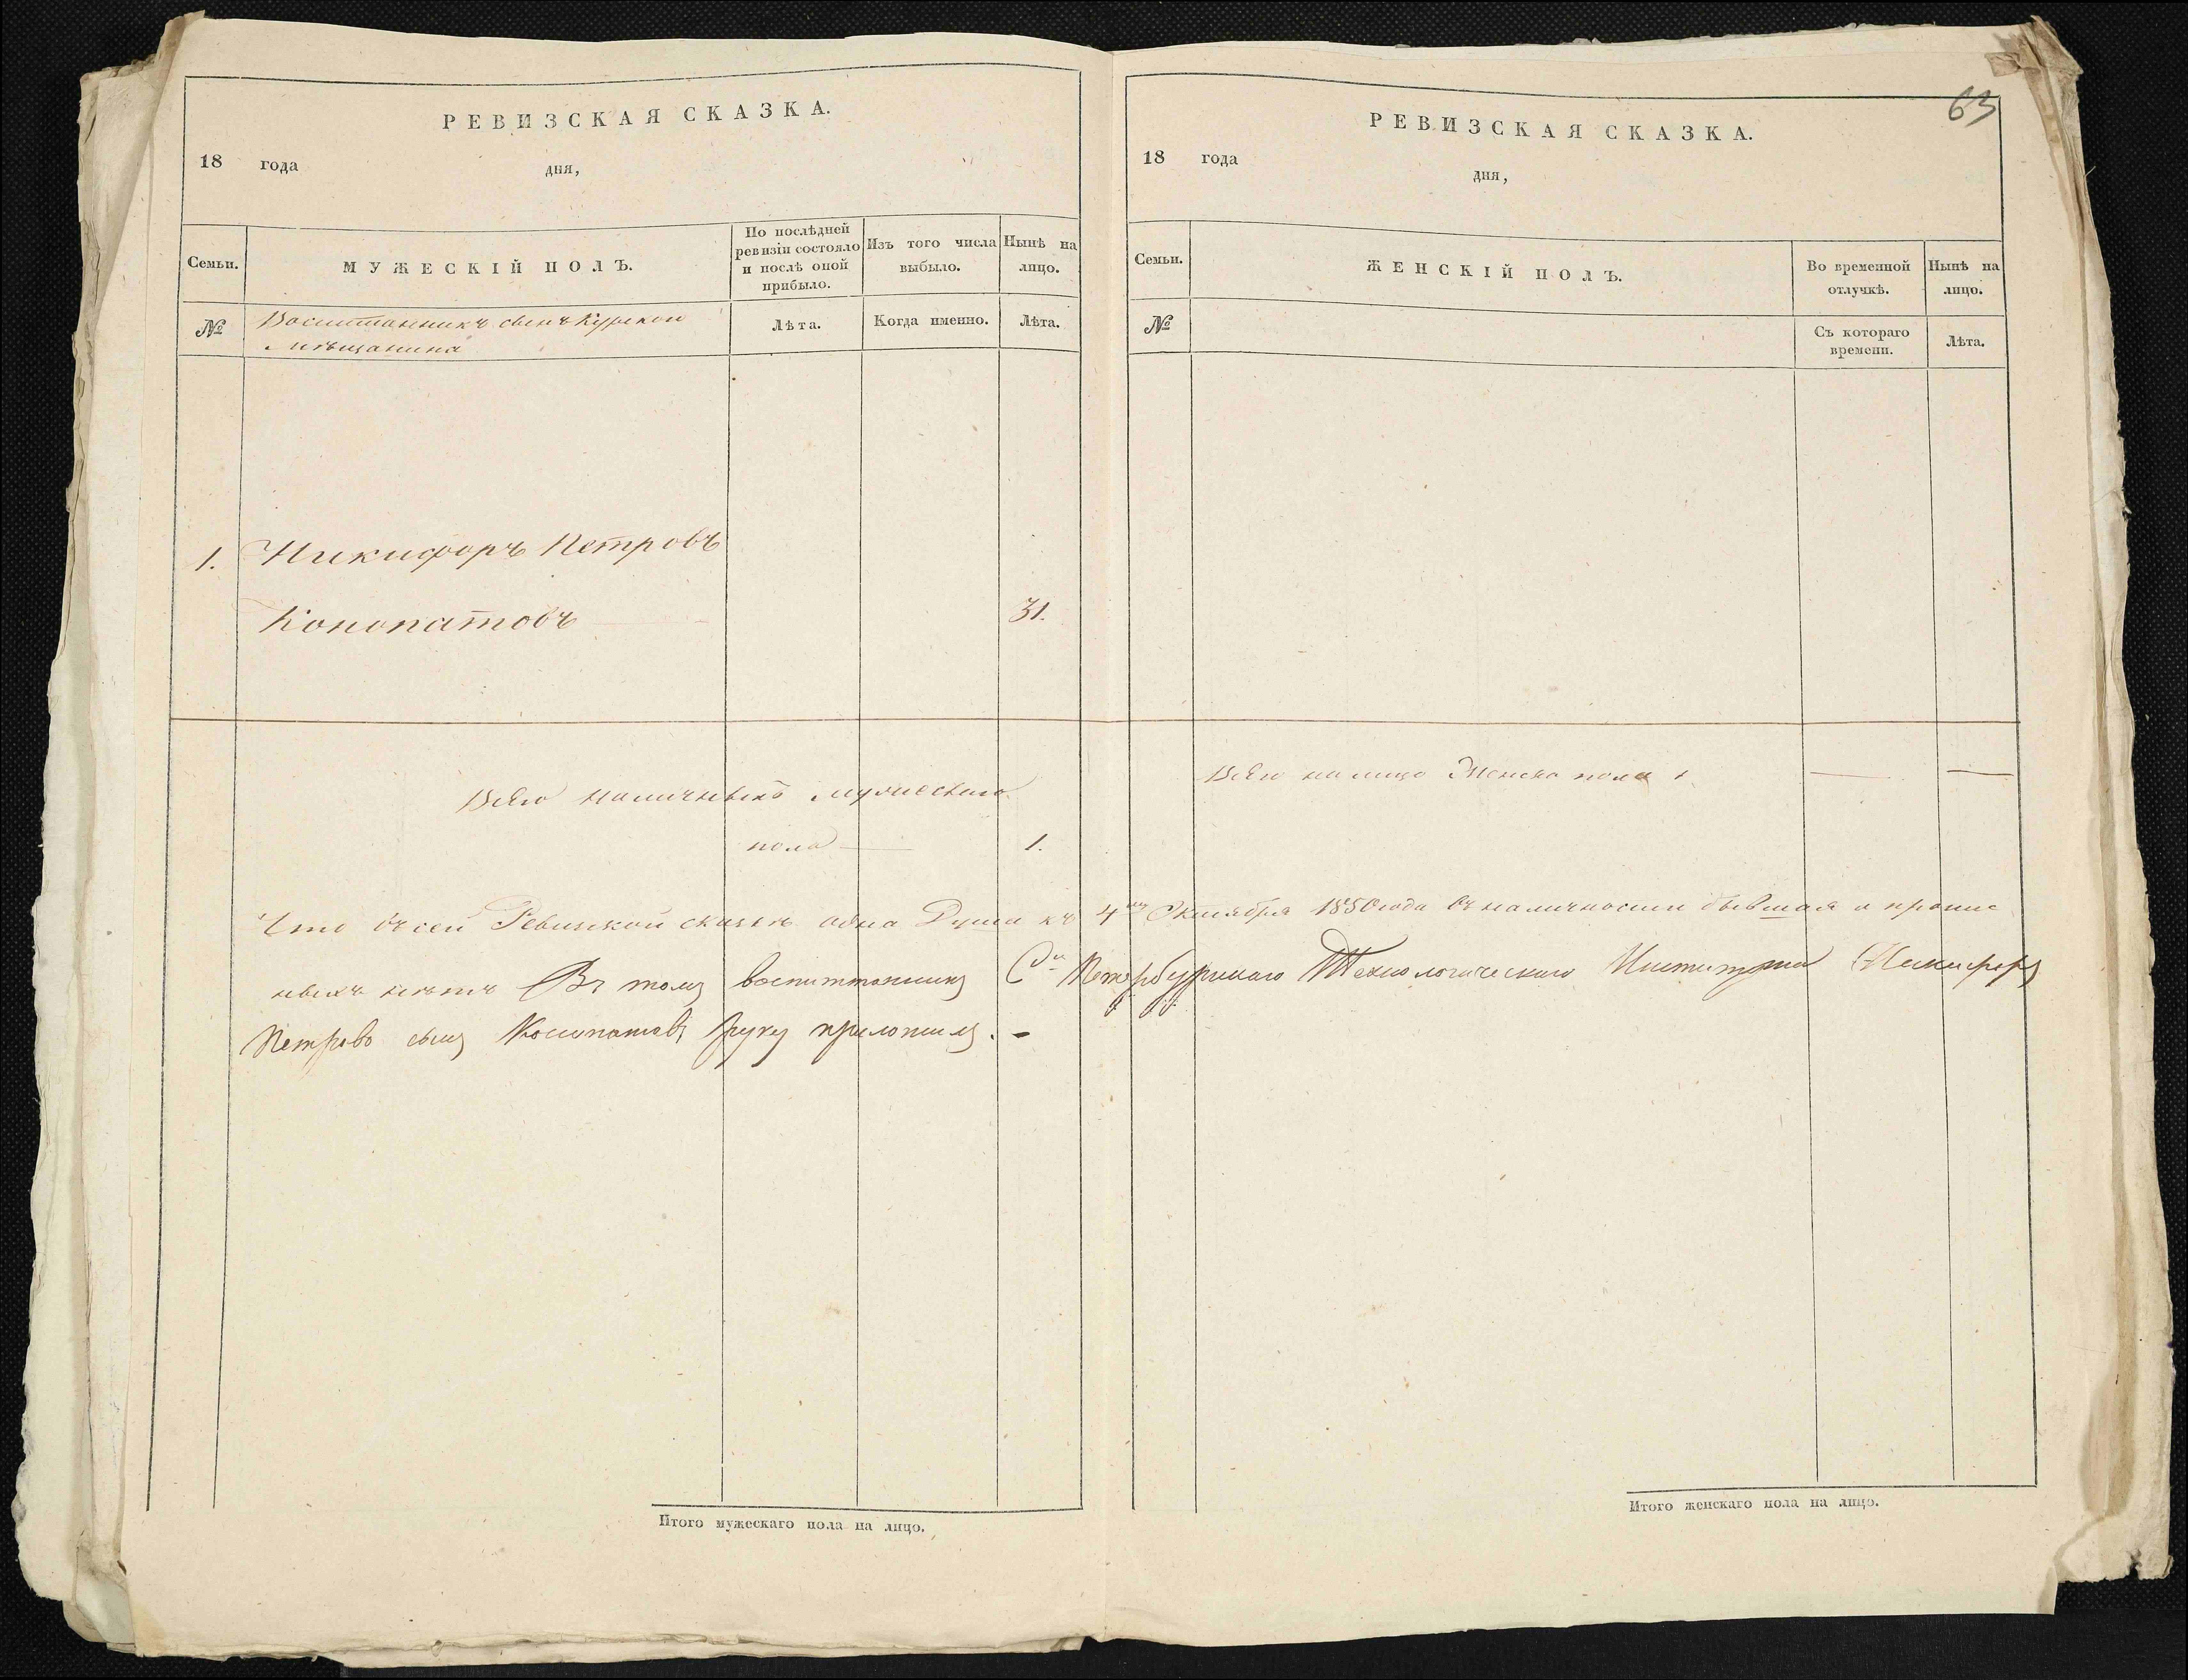 РЕВИЗСКАЯ СКАЗКА.
18 года дня,
Семьи.
МУЖЕСКІЙ ПОЛЪ.
По послѣдней
ревизіи состояло
и послѣ оной
прибыло.
Изъ того числа
выбыло.
Нынѣ на
лицо.
№
Воспитанникъ сынъ Курскои
мѣщанина
Лѣта.
Когда именно.
Лѣта.
1. Никифоръ Петровъ
Конопатовъ 31.
Всего наличныхъ мужескаго
пола 1.
Итого мужескаго пола на лицо.
63
РЕВИЗСКАЯ СКАЗКА.
18 года дня,
Семьи.
ЖЕНСКІЙ ПОЛЪ.
Во временной
отлучкѣ.
Нынѣ на
лицо.
№
Съ котораго
времени.
Лѣта.
Всего на лицо Женска пола
Что въ сей Ревизкой сказкѣ одна Душа къ 4му Октября 1850 года въ наличности бывшая и пропис
ныхъ нѣтъ Въ томъ воспиттанникъ С Петербургскаго Технологическаго Института Никифоръ
Петровъ сынъ Конопатовъ руку приложилъ. -
Итого женскаго пола на лицо.